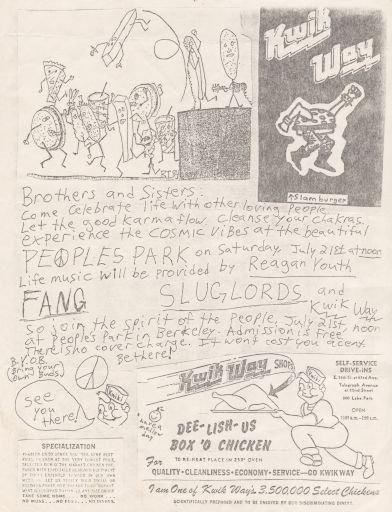 Kwik
Way
↑Slamburger
Brothers and Sisters:
Come Celebrate life with other loving People.
Let the good Karma flow Cleanse your Chakras.
experience the COSMIC vibes at the beautiful
PEOPLES PARK on Saturday, July 21st at noon
Life music will be provided by Reagan Youth
FANG SLUGLORDS and Kwik Way
So join the spirit of the People, July 21st noon
at Peoples Park in Berkeley. Admission is Free
There is no cover charge. It wont cost you a cent.
Be there!
B.Y.O.B.
(Bring your
own Buds)
See
you
there!
have a
mellow
day
Kwik Way SHOPS
SELF-SERVICE
DRIVE-INS
Telegraph Avenue
at 22nd Street
500 Lake Park
OPEN
DEE-LISH-US
BOX 'O CHICKEN
TO RE-HEAT PLACE IN 250° OVEN
For
QUALITY • CLEANLINESS • ECONOMY • SERVICE—GO KWIK WAY
I am One of Kwik Way's 3,500,000 Select Chickens
SCIENTIFICALLY PREPARED AND TO BE ENJOYED BY OUR DISCRIMINATING DINERS.
SPECIALIZATION
TAKE SOME HOME . . . NO WORK
NO MUSS . . . NO FUSS . . . NO DISHES.